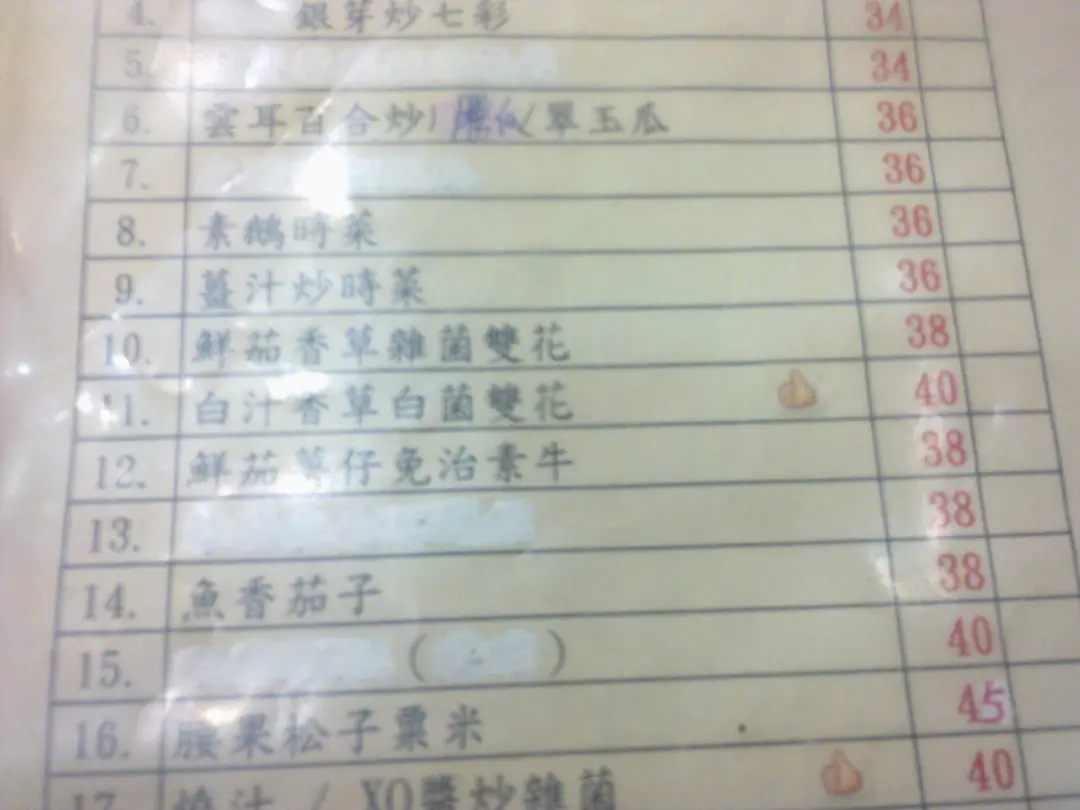 4. 銀芽炒七彩 34
5. 34
6. 雲耳百合炒 / 翠玉瓜 36
7. 36
8. 素鵝時菜 36
9. 薑汁炒時菜 36
10. 鮮茄香草雜菌雙花 38
11. 白汁香草白菌雙花 40
12. 鮮茄薯仔免治素牛 38
13. 38
14. 魚香茄子 38
15. ( ) 40
16. 腰果松子粟米 45
17. 燒汁 / XO醬炒雜菌 40